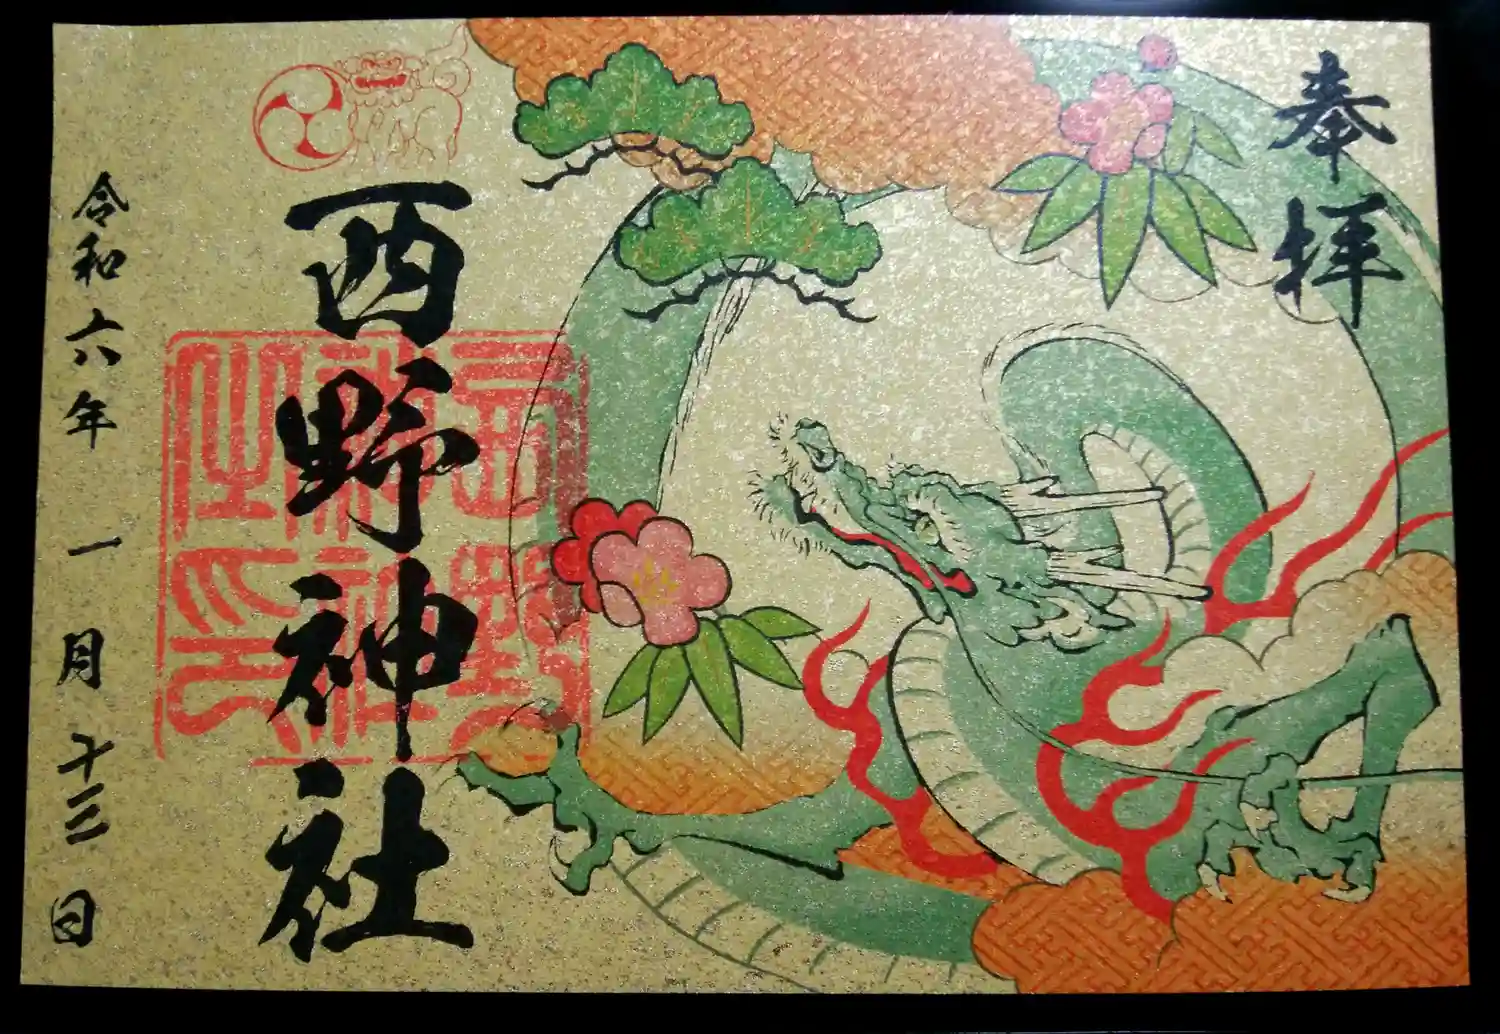 奉拝
西野神社
西野神社之印
令和六年一月十三日